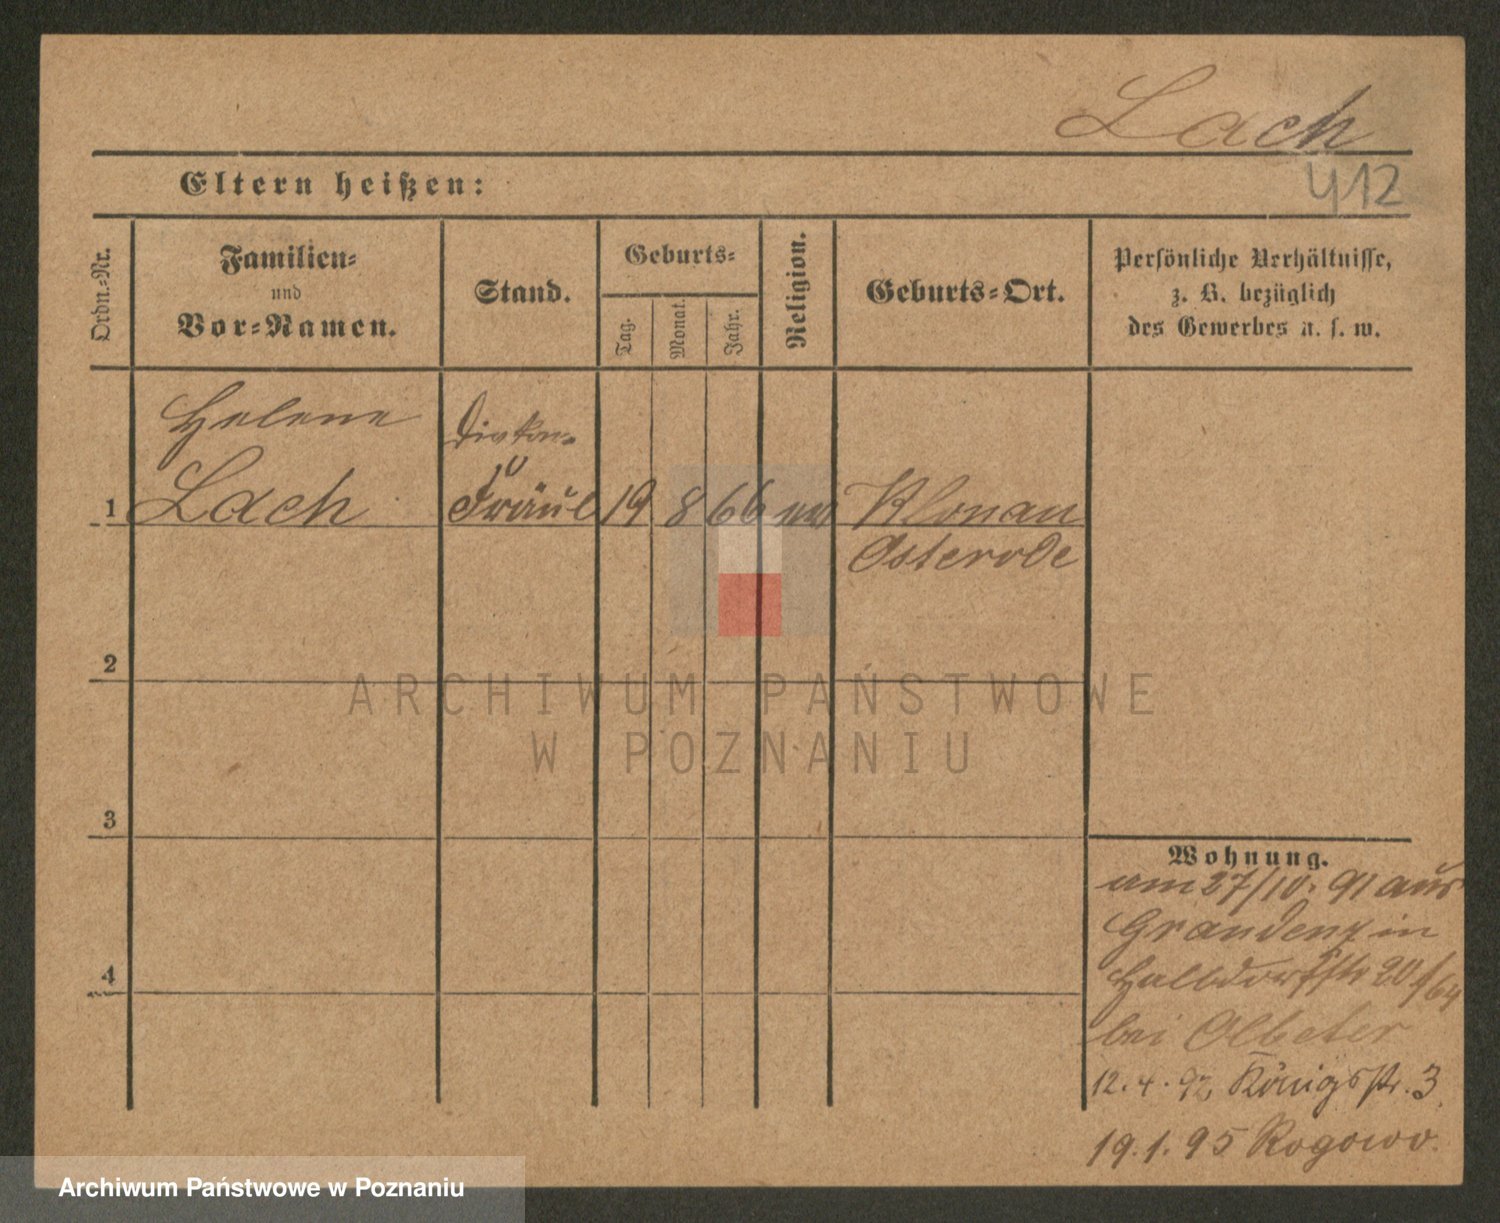 Lach
412
Eltern heißen:
Ordn.-Nr.
Familien-
und
Vor-Namen.
Stand.
Geburts-
Tag.
Monat.
Jahr.
Religion.
Geburts-Ort.
Persönliche Verhältnisse,
z. B. bezüglich
des Gewerbes u. s. w.
Helene
Lach
1
Fräul
19 8 66 ev
Klonau
Osterode
2
ARCHIWUM PAŃSTWOWE
W POZNANIU
3
Wohnung.
am 27/10. 91 aus
Graudenz in
Halbdorfstr 20
bei
4
12.4.92 Königsstr. 3
19.1.95 Rogowo.
Archiwum Państwowe w Poznaniu